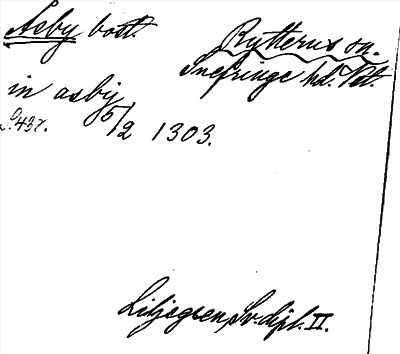 Åsby bost.
Rytterns sn.
Snefringe hd. Vstl.
in asby 5/2 1303.
S. 437.
Liljegren, Sv. dipl. II.